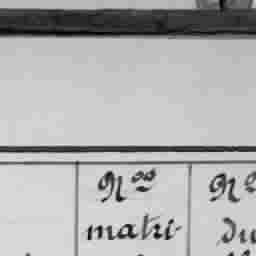 Nos
matri-
No
du